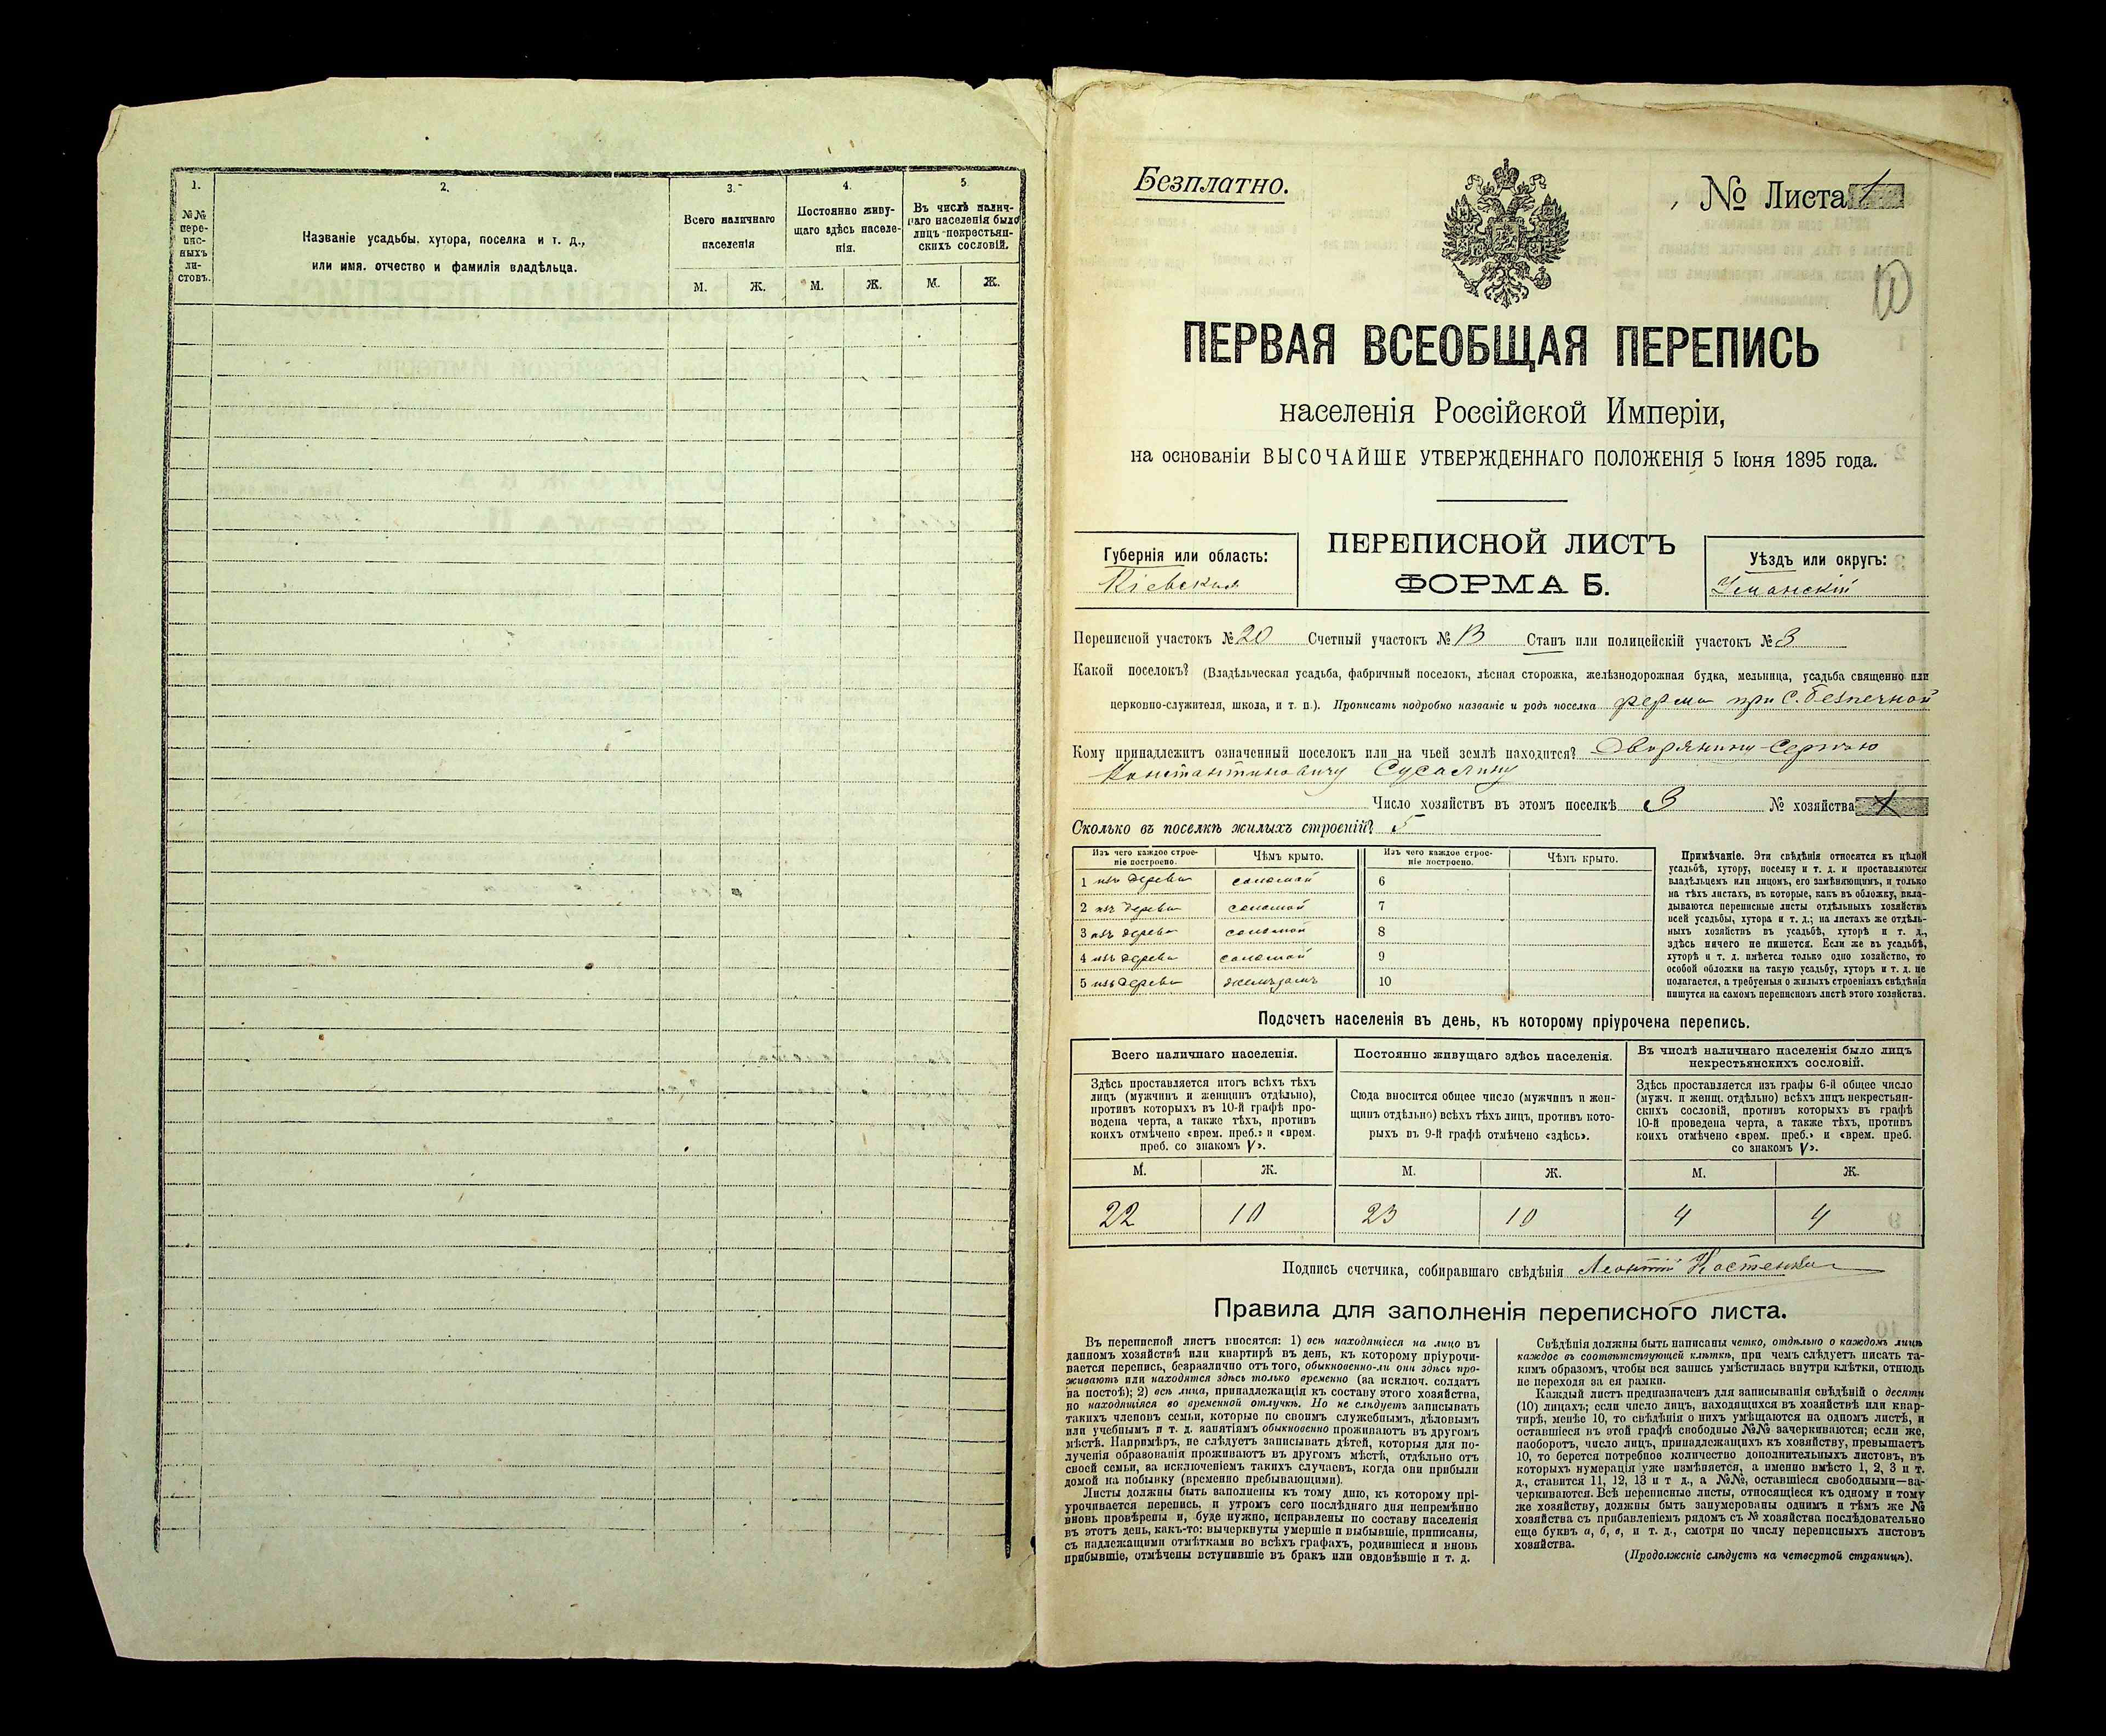 1.
№№ пере-
пис-
ныхъ
ли-
стовъ.
2.
Названіе усадьбы, хутора, поселка и т. д.,
или имя, отчество и фамилія владѣльца.
3.
Всего наличнаго
населенія
М. Ж.
4.
Постоянно живу-
щаго здѣсь населе-
нія.
М. Ж.
5
Въ числѣ налич-
наго населенія было
лицъ некрестьян-
скихъ сословій.
М. Ж.
Безплатно.
№ Листа 1
10
ПЕРВАЯ ВСЕОБЩАЯ ПЕРЕПИСЬ
населенія Россійской Имперіи,
на основаніи ВЫСОЧАЙШЕ УТВЕРЖДЕННАГО ПОЛОЖЕНІЯ 5 Іюня 1895 года.
Губернія или область:
Кіевская
ПЕРЕПИСНОЙ ЛИСТЪ
ФОРМА Б.
Уѣздъ или округъ:
Уманскій
Переписной участокъ № 20 Счетный участокъ № 13 Станъ или полицейскій участокъ № 3
Какой поселокъ? (Владѣльческая усадьба, фабричный поселокъ, лѣсная сторожка, желѣзнодорожная будка, мельница, усадьба священно или
церковно-служителя, школа, и т. п.). Прописать подробно названіе и родъ поселка ферма при С. Безпечной
Кому принадлежитъ означенный поселокъ или на чьей землѣ находится? Дворянину Сергѣю
Константиновичу Сусалину
Число хозяйствъ въ этомъ поселкѣ 3 № хозяйства
Сколько въ поселкѣ жилыхъ строеній? 5
Изъ чего каждое строе-
ніе построено.
Чѣмъ крыто.
Изъ чего каждое строе-
ніе построено.
Чѣмъ крыто.
1 изъ дерева соломой 6
2 изъ дерева соломой 7
3 изъ дерева соломой 8
4 изъ дерева соломой 9
5 изъ дерева желѣзомъ 10
Примѣчаніе. Эти свѣдѣнія относятся къ цѣлой
усадьбѣ, хутору, поселку и т. д. и проставляются
владѣльцемъ или лицомъ, его замѣняющимъ, и только
на тѣхъ листахъ, въ которые, какъ въ обложку, вкла-
дываются переписные листы отдѣльныхъ хозяйствъ
всей усадьбы, хутора и т. д.; на листахъ же отдѣль-
ныхъ хозяйствъ въ усадьбѣ, хуторѣ и т. д.,
здѣсь ничего не пишется. Если же въ усадьбѣ,
хуторѣ и т. д. имѣется только одно хозяйство, то
особой обложки на такую усадьбу, хуторъ и т. д. не
полагается, а требуемыя о жилыхъ строеніяхъ свѣдѣнія
пишутся на самомъ переписномъ листѣ этого хозяйства.
Подсчетъ населенія въ день, къ которому пріурочена перепись.
Всего наличнаго населенія.
Здѣсь проставляется итогъ всѣхъ тѣхъ
лицъ (мужчинъ и женщинъ отдѣльно),
противъ которыхъ въ 10-й графѣ про-
ведена черта, а также тѣхъ, противъ
коихъ отмѣчено «врем. преб.» и «врем.
преб. со знакомъ V».
М. Ж.
22 10
Постоянно живущаго здѣсь населенія.
Сюда вносится общее число (мужчинъ и жен-
щинъ отдѣльно) всѣхъ тѣхъ лицъ, противъ кото-
рыхъ въ 9-й графѣ отмѣчено «здѣсь».
М. Ж.
23 10
Въ числѣ наличнаго населенія было лицъ
некрестьянскихъ сословій.
Здѣсь проставляется изъ графы 6-й общее число
(мужч. и женщ. отдѣльно) всѣхъ лицъ некрестьян-
скихъ сословій, противъ которыхъ въ графѣ
10-й проведена черта, а также тѣхъ, противъ
коихъ отмѣчено «врем. преб.» и «врем. преб.
со знакомъ V».
М. Ж.
4 4
Подпись счетчика, собиравшаго свѣдѣнія Леонтій Костенко
Правила для заполненія переписного листа.
Въ переписной листъ вносятся: 1) всѣ находящіеся на лицо въ
данномъ хозяйствѣ или квартирѣ въ день, къ которому пріурочи-
вается перепись, безразлично отъ того, обыкновенно-ли они здѣсь про-
живаютъ или находятся здѣсь только временно (за исключ. солдатъ
на постоѣ); 2) всѣ лица, принадлежащія къ составу этого хозяйства,
но находящіяся во временной отлучкѣ. Но не слѣдуетъ записывать
такихъ членовъ семьи, которые по своимъ служебнымъ, дѣловымъ
или учебнымъ и т. д. занятіямъ обыкновенно проживаютъ въ другомъ
мѣстѣ. Напримѣръ, не слѣдуетъ записывать дѣтей, которыя для по-
лученія образованія проживаютъ въ другомъ мѣстѣ, отдѣльно отъ
своей семьи, за исключеніемъ такихъ случаевъ, когда они прибыли
домой на побывку (временно пребывающими).
Листы должны быть заполнены къ тому дню, къ которому прі-
урочивается перепись, и утромъ сего послѣдняго дня непремѣнно
вновь провѣрены и, буде нужно, исправлены по составу населенія
въ этотъ день, какъ-то: вычеркнуты умершіе и выбывшіе, приписаны,
съ надлежащими отмѣтками во всѣхъ графахъ, родившіеся и вновь
прибывшіе, отмѣчены вступившіе въ бракъ или овдовѣвшіе и т. д.
Свѣдѣнія должны быть написаны четко, отдѣльно о каждомъ лицѣ
каждое въ соотвѣтствующей клѣткѣ, при чемъ слѣдуетъ писать та-
кимъ образомъ, чтобы вся запись умѣстилась внутри клѣтки, отнюдь
не переходя за ея рамки.
Каждый листъ предназначенъ для записыванія свѣдѣній о десяти
(10) лицахъ; если число лицъ, находящихся въ хозяйствѣ или квар-
тирѣ, менѣе 10, то свѣдѣнія о нихъ умѣщаются на одномъ листѣ, и
оставшіеся въ этой графѣ свободные №№ зачеркиваются; если же,
наоборотъ, число лицъ, принадлежащихъ къ хозяйству, превышаетъ
10, то берется потребное количество дополнительныхъ листовъ, въ
которыхъ нумерація уже измѣняется, а именно вмѣсто 1, 2, 3 и т.
д., ставится 11, 12, 13 и т д., а №№, оставшіеся свободными—за-
черкиваются. Всѣ переписные листы, относящіеся къ одному и тому
же хозяйству, должны быть занумерованы однимъ и тѣмъ же №
хозяйства съ прибавленіемъ рядомъ съ № хозяйства послѣдовательно
еще буквъ а, б, в, и т. д., смотря по числу переписныхъ листовъ
хозяйства.
(Продолженіе слѣдуетъ на четвертой страницѣ).